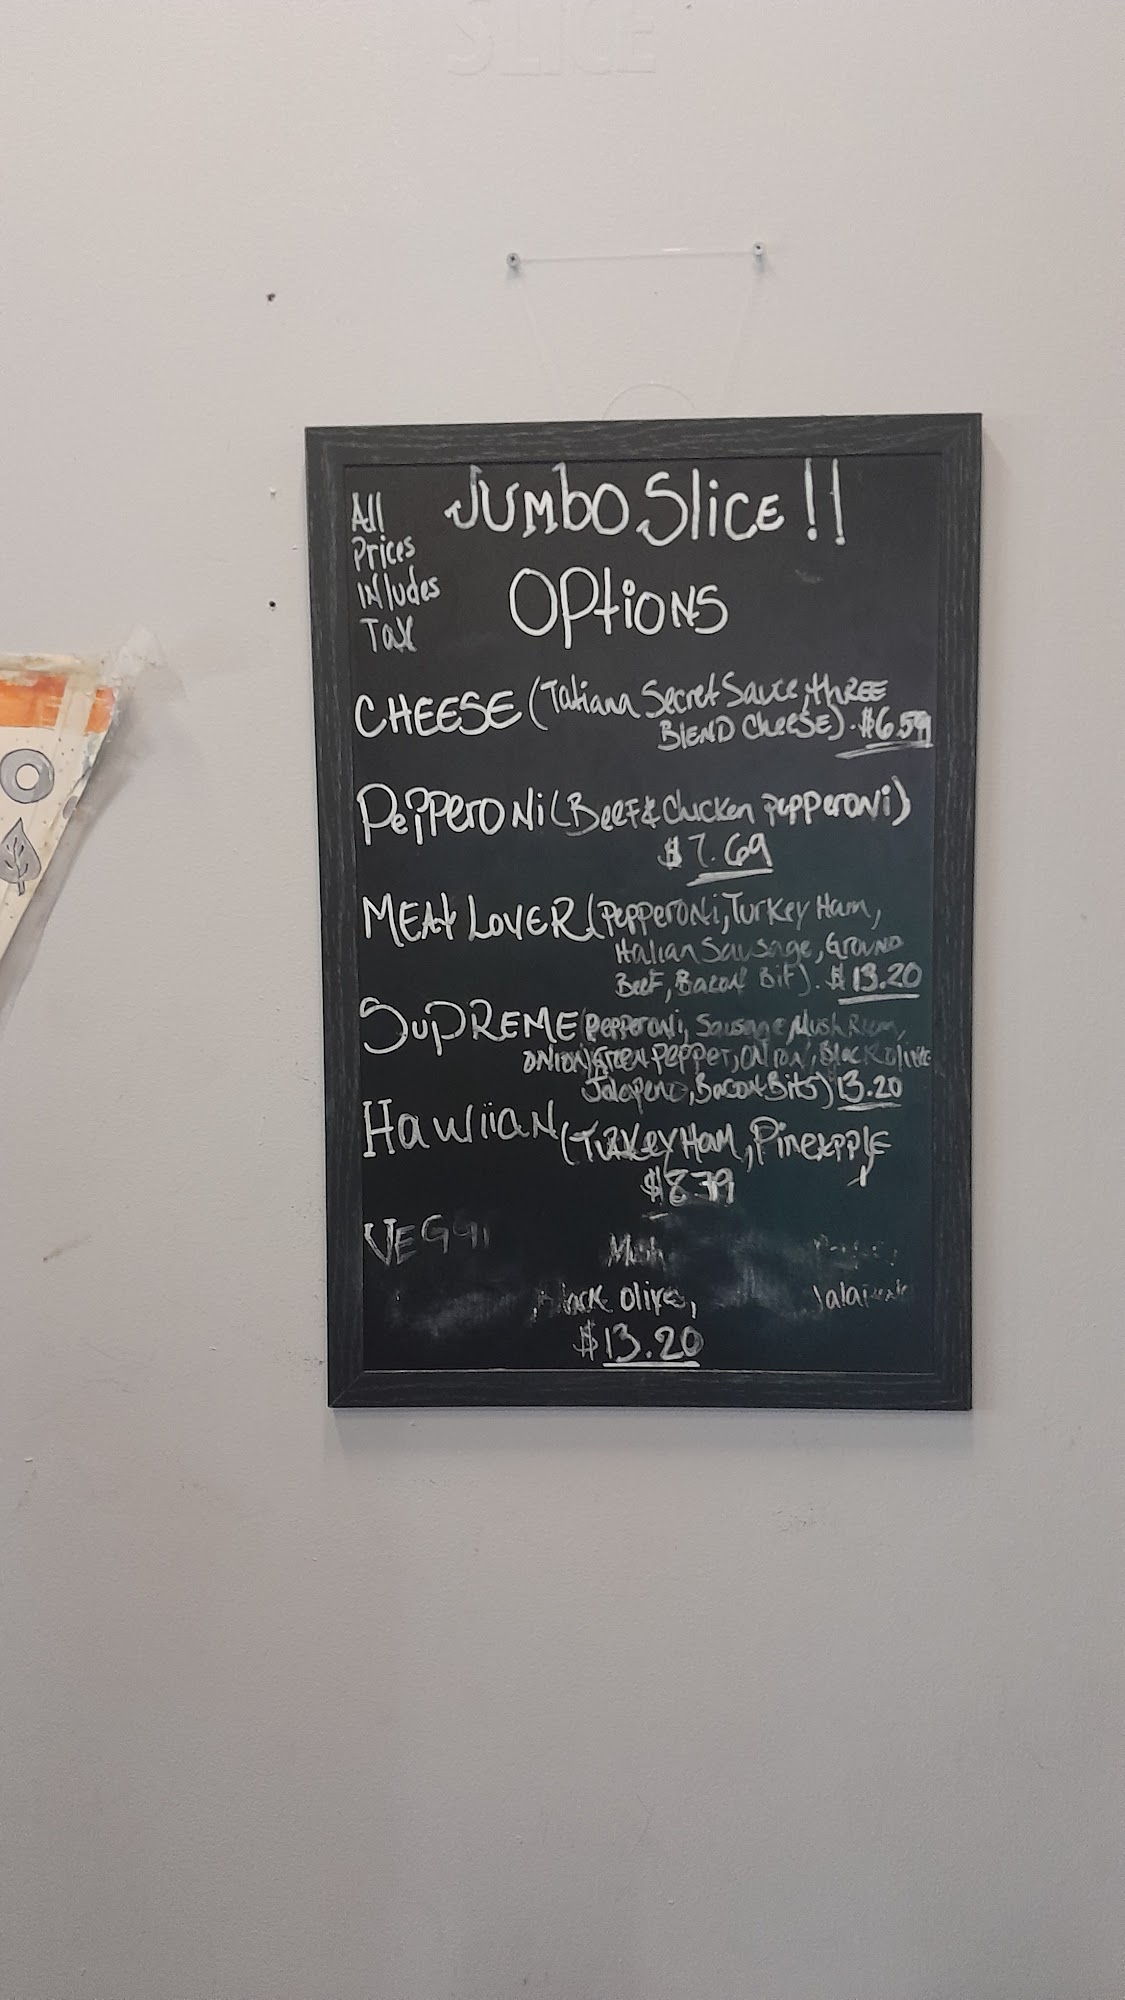 SLICE
All
Prices
INludes
Tax
Jumbo Slice !!
Options
CHEESE (Tatiana Secret Sauce, thREE
BlEND CheeSE). $6.59
Pepperoni (Beef & Chicken pepperoni)
$7.69
MEAt LOVER (Pepperoni, Turkey Ham,
Italian Sausage, Ground
Beef, Bacon Bit). $13.20
SuPREME (Pepperoni, Sausage, MushRoom,
ONION, Green Pepper, ONION, Black olive
Jalapeno, Bacon Bits) 13.20
Hawiian (Turkey Ham, Pineapple
$8.79
VEGGI
Mush
black olive,
$13.20